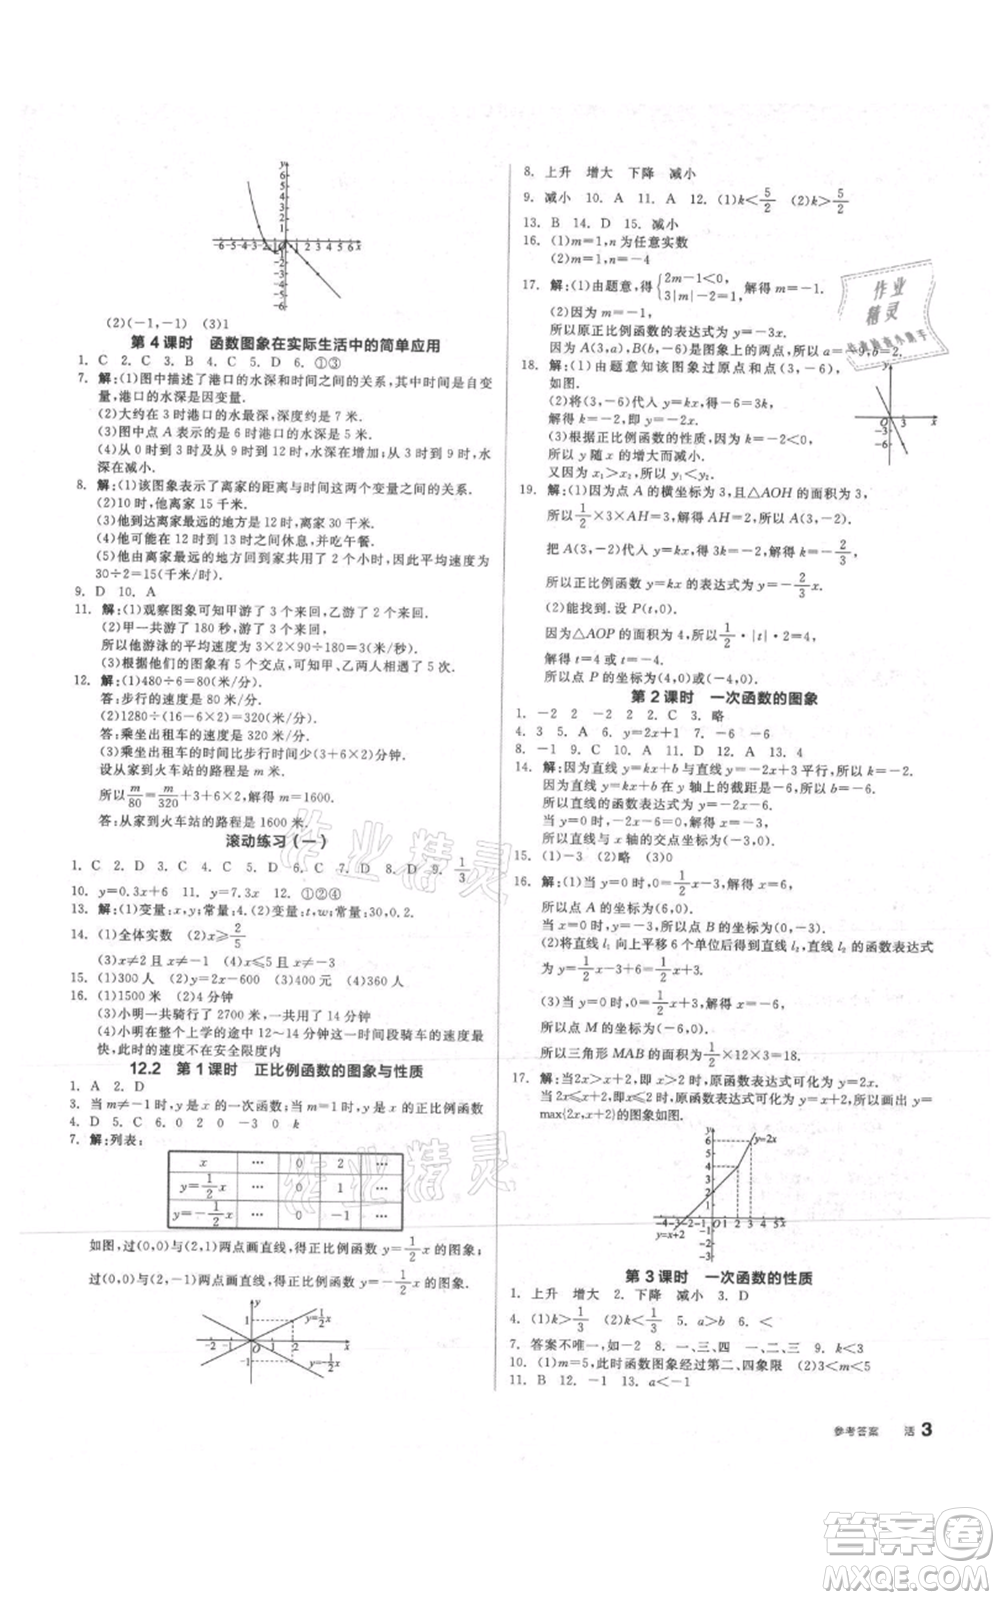 (2)(-1,-1) (3)1
第4课时 函数图象在实际生活中的简单应用
1. C 2. C 3. B 4. C 5. D 6. ①③
7. 解:(1)图中描述了港口的水深和时间之间的关系,其中时间是自变
量,港口的水深是因变量.
(2)大约在3时港口的水最深,深度约是7米.
(3)图中点A表示的是6时港口的水深是5米.
(4)从0时到3时及9时到12时,水深在增加;从3时到9时,水
深在减小.
8. 解:(1)该图象表示了离家的距离与时间这两个变量之间的关系.
(2)10时,他离家15千米.
(3)他到达离家最远的地方是12时,离家30千米.
(4)他可能在12时到13时之间休息,并吃午餐.
(5)他由离家最远的地方回到家共花2个小时,因此平均速度为
30÷2=15(千米/时).
9. D 10. A
11. 解:(1)观察图象可知甲游了3个来回,乙游了2个来回.
(2)甲一共游了180秒,游了3个来回,
所以他游泳的平均速度为3×2×90÷180=3(米/秒).
(3)根据他们的图象有5个交点,可知甲、乙两人相遇了5次.
12. 解:(1)480÷6=80(米/分).
答:步行的速度是80米/分.
(2)1280÷(16-6×2)=320(米/分).
答:乘坐出租车的速度是320米/分.
(3)乘坐出租车的时间比步行时间少(3+6×2)分钟.
设从家到火车站的路程是m米.
所以m/80=m/320+3+6×2,解得m=1600.
答:从家到火车站的路程是1600米.
滚动练习(一)
1. C 2. D 3. C 4. D 5. D 6. C 7. D 8. D 9. 1/3
10. y=0.3x+6 11. y=7.3x 12. ①②④
13. 解:(1)变量:x,y;常量:4.(2)变量:t,w;常量:30,0.2.
14. (1)全体实数 (2)x≥2/5
(3)x≠2且x≠-1 (4)x≤5且x≠-3
15. (1)300人 (2)y=2x-600 (3)300元 (4)360人
16. (1)1500米 (2)4分钟
(3)小明一共骑行了2700米,共用了14分钟
(4)小明在整个上学的途中12~14分钟这一时间段骑车的速度最
快,此时的速度不在安全限度内
12.2 第1课时 正比例函数的图象与性质
1. A 2. D
3. 当m≠-1时,y是x的一次函数;当m=1时,y是x的正比例函数
4. D 5. C 6. 0 2 0 -3 0 k
7. 解:列表:
x … 0 2 …
y=1/2x … 0 1 …
y=-1/2x … 0 -1 …
如图,过(0,0)与(2,1)两点画直线,得正比例函数y=1/2x的图象;
过(0,0)与(2,-1)两点画直线,得正比例函数y=-1/2x的图象.
8. 上升 增大 下降 减小
9. 减小 10. A 11. A 12. (1)k<5/2 (2)k>5/2
13. B 14. D 15. 减小
16. (1)m=1,n为任意实数
(2)m=1,n=-4
17. 解:(1)由题意,得{2m-1<0, 3|m|-2=1, 解得m=-1.
(2)因为m=-1,
所以正比例函数的表达式为y=-3x.
因为A(3,a),B(b,-6)为图象上的两点,所以a=-9,b=2.
18. 解:(1)由题意知该图象过原点和点(3,-6),
如图.
(2)将(3,-6)代入y=kx,得-6=3k,
解得k=-2,所以y=-2x.
(3)根据正比例函数的性质,因为k=-2<0,
所以y随x的增大而减小.
又因为x₁>x₂,所以y₁<y₂.
19. 解:(1)因为点A的横坐标为3,且△AOH的面积为3,
所以1/2×3×AH=3,解得AH=2,所以A(3,-2).
把A(3,-2)代入y=kx,得-2=3k,解得k=-2/3,
所以正比例函数y=kx的表达式为y=-2/3x.
(2)能找到.设P(t,0).
因为△AOP的面积为4,所以1/2·|t|·2=4,
解得t=4或t=-4,
所以点P的坐标为(4,0)或(-4,0).
第2课时 一次函数的图象
1. -2 2 -2 2 2. C 3. 略
4. 3 5. A 6. y=2x+1 7. -6 -6
8. -1 9. C 10. A 11. D 12. A 13. 4
14. 解:因为直线y=kx+b与直线y=-2x+3平行,所以k=-2.
因为直线y=kx+b在y轴上的截距是-6,所以b=-6.
所以直线的函数表达式为y=-2x-6.
当y=0时,-2x-6=0,解得x=-3,
所以直线与x轴的交点坐标为(-3,0).
15. (1)-3 (2)略 (3)0
16. 解:(1)当y=0时,1/2x-3=0,解得x=6,
所以点A的坐标为(6,0).
当x=0时,y=-3,所以点B的坐标为(0,-3).
(2)将直线l₁向上平移6个单位后得到直线l₂,直线l₂的函数表达式
为y=1/2x-3+6=1/2x+3.
(3)当y=0时,1/2x+3=0,解得x=-6,
所以点M的坐标为(-6,0).
所以三角形MAB的面积为1/2×12×3=18.
17. 解:当2x>x+2,即x>2时,原函数表达式可转化为y=2x;
当2x≤x+2,即x≤2时,原函数表达式为y=x+2,所以画出y=
max{2x,x+2}的图象如图.
第3课时 一次函数的性质
1. 上升 增大 2. 下降 减小 3. D
4. (1)k>1/3 (2)k<1/3 5. a>b 6. <
7. 答案不唯一,如2 8. 一、三、四 一、二、三 9. k<3
10. (1)m=5,此时函数图象经过第二、四象限 (2)3<m<5
11. B 12. -1 13. a<-1
参考答案 活 3
作业精灵
答案卷
MXQE.COM